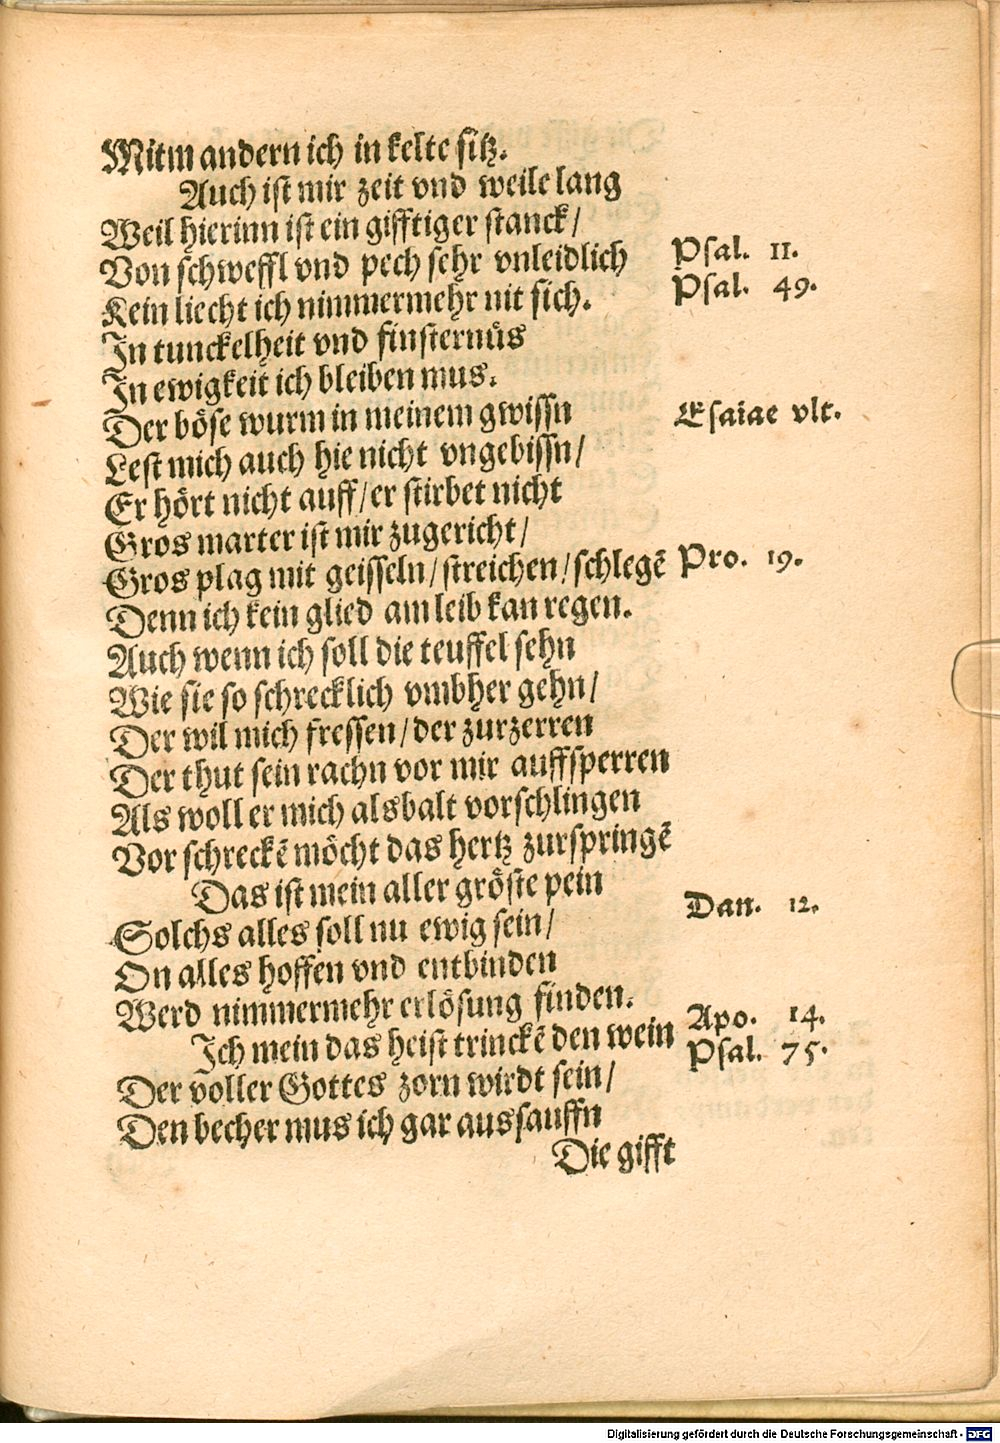 Mitm andern ich in kelte sitz.
Auch ist mir zeit vnd weile lang
Weil hierinn ist ein gifftiger stanck/
Von schweffl vnd pech sehr vnleidlich Psal. 11.
Kein liecht ich nimmermehr nit sich. Psal. 49.
In tunckelheit vnd finsternüs
In ewigkeit ich bleiben mus.
Der böse wurm in meinem gwissn Esaiae vlt.
Lest mich auch hie nicht vngebissn/
Er hört nicht auff/er stirbet nicht
Gros marter ist mir zugericht/
Gros plag mit geisseln/streichen/schlegē Pro. 19.
Denn ich kein glied am leib kan regen.
Auch wenn ich soll die teuffel sehn
Wie sie so schrecklich vmbher gehn/
Der wil mich fressen/der zurzerren
Der thut sein rachn vor mir auffsperren
Als woll er mich alsbalt vorschlingen
Vor schreckē möcht das hertz zurspringē
Das ist mein aller gröste pein
Solchs alles soll nu ewig sein/ Dan. 12.
On alles hoffen vnd entbinden
Werd nimmermehr erlösung finden.
Ich mein das heist trinckē den wein Apo. 14.
Der voller Gottes zorn wirdt sein/ Psal. 75.
Den becher mus ich gar aussauffn
Die gifft
Digitalisierung gefördert durch die Deutsche Forschungsgemeinschaft - DFG